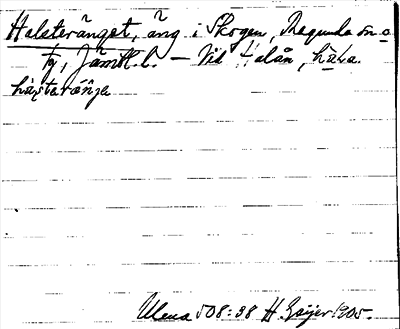 Halsteränget, äng i Skogen, Ragunda sn o
tg, Jämtl. l. — Vid Halån, hàɬa.
hàɬsterä́nje
Ulma 508:38 H. Geijer 1905.